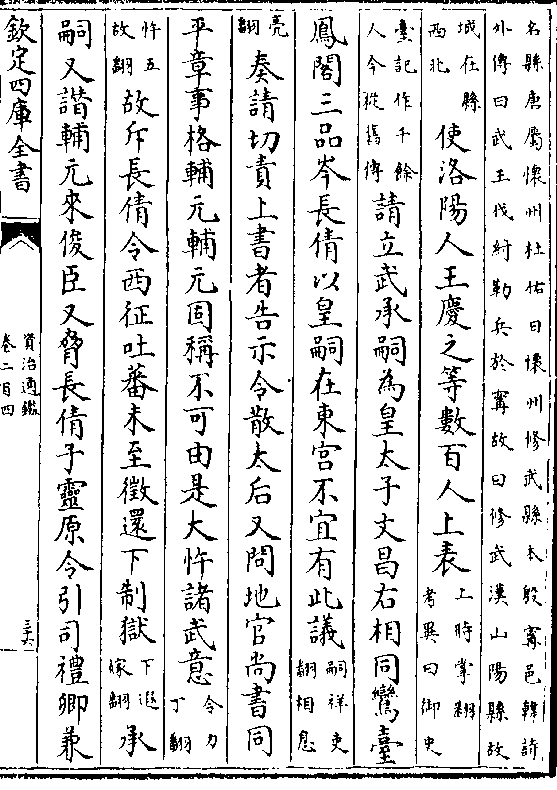 名縣唐屬懷州杜佑曰懷州修武縣本殷甯邑韓詩
外傳曰武王伐紂勒兵於甯故曰修武漢山陽縣故
城在縣西北使洛陽人王慶之等數百人上表上時掌翻考異曰御史
臺記作千餘人今從舊傳請立武承嗣為皇太子文昌右相同鸞臺
鳳閣三品岑長倩以皇嗣在東宮不宜有此議嗣祥吏翻相息
亮翻奏請切責上書者告示令散太后又問地官尚書同
平章事格輔元輔元固稱不可由是大忤諸武意令力丁翻
忤五故翻故斥長倩令西征吐蕃未至徵還下制獄下遐嫁翻承
嗣又譖輔元來俊臣又脅長倩子靈原令引司禮卿兼
欽定四庫全書
資治通鑑
卷二百四
三六